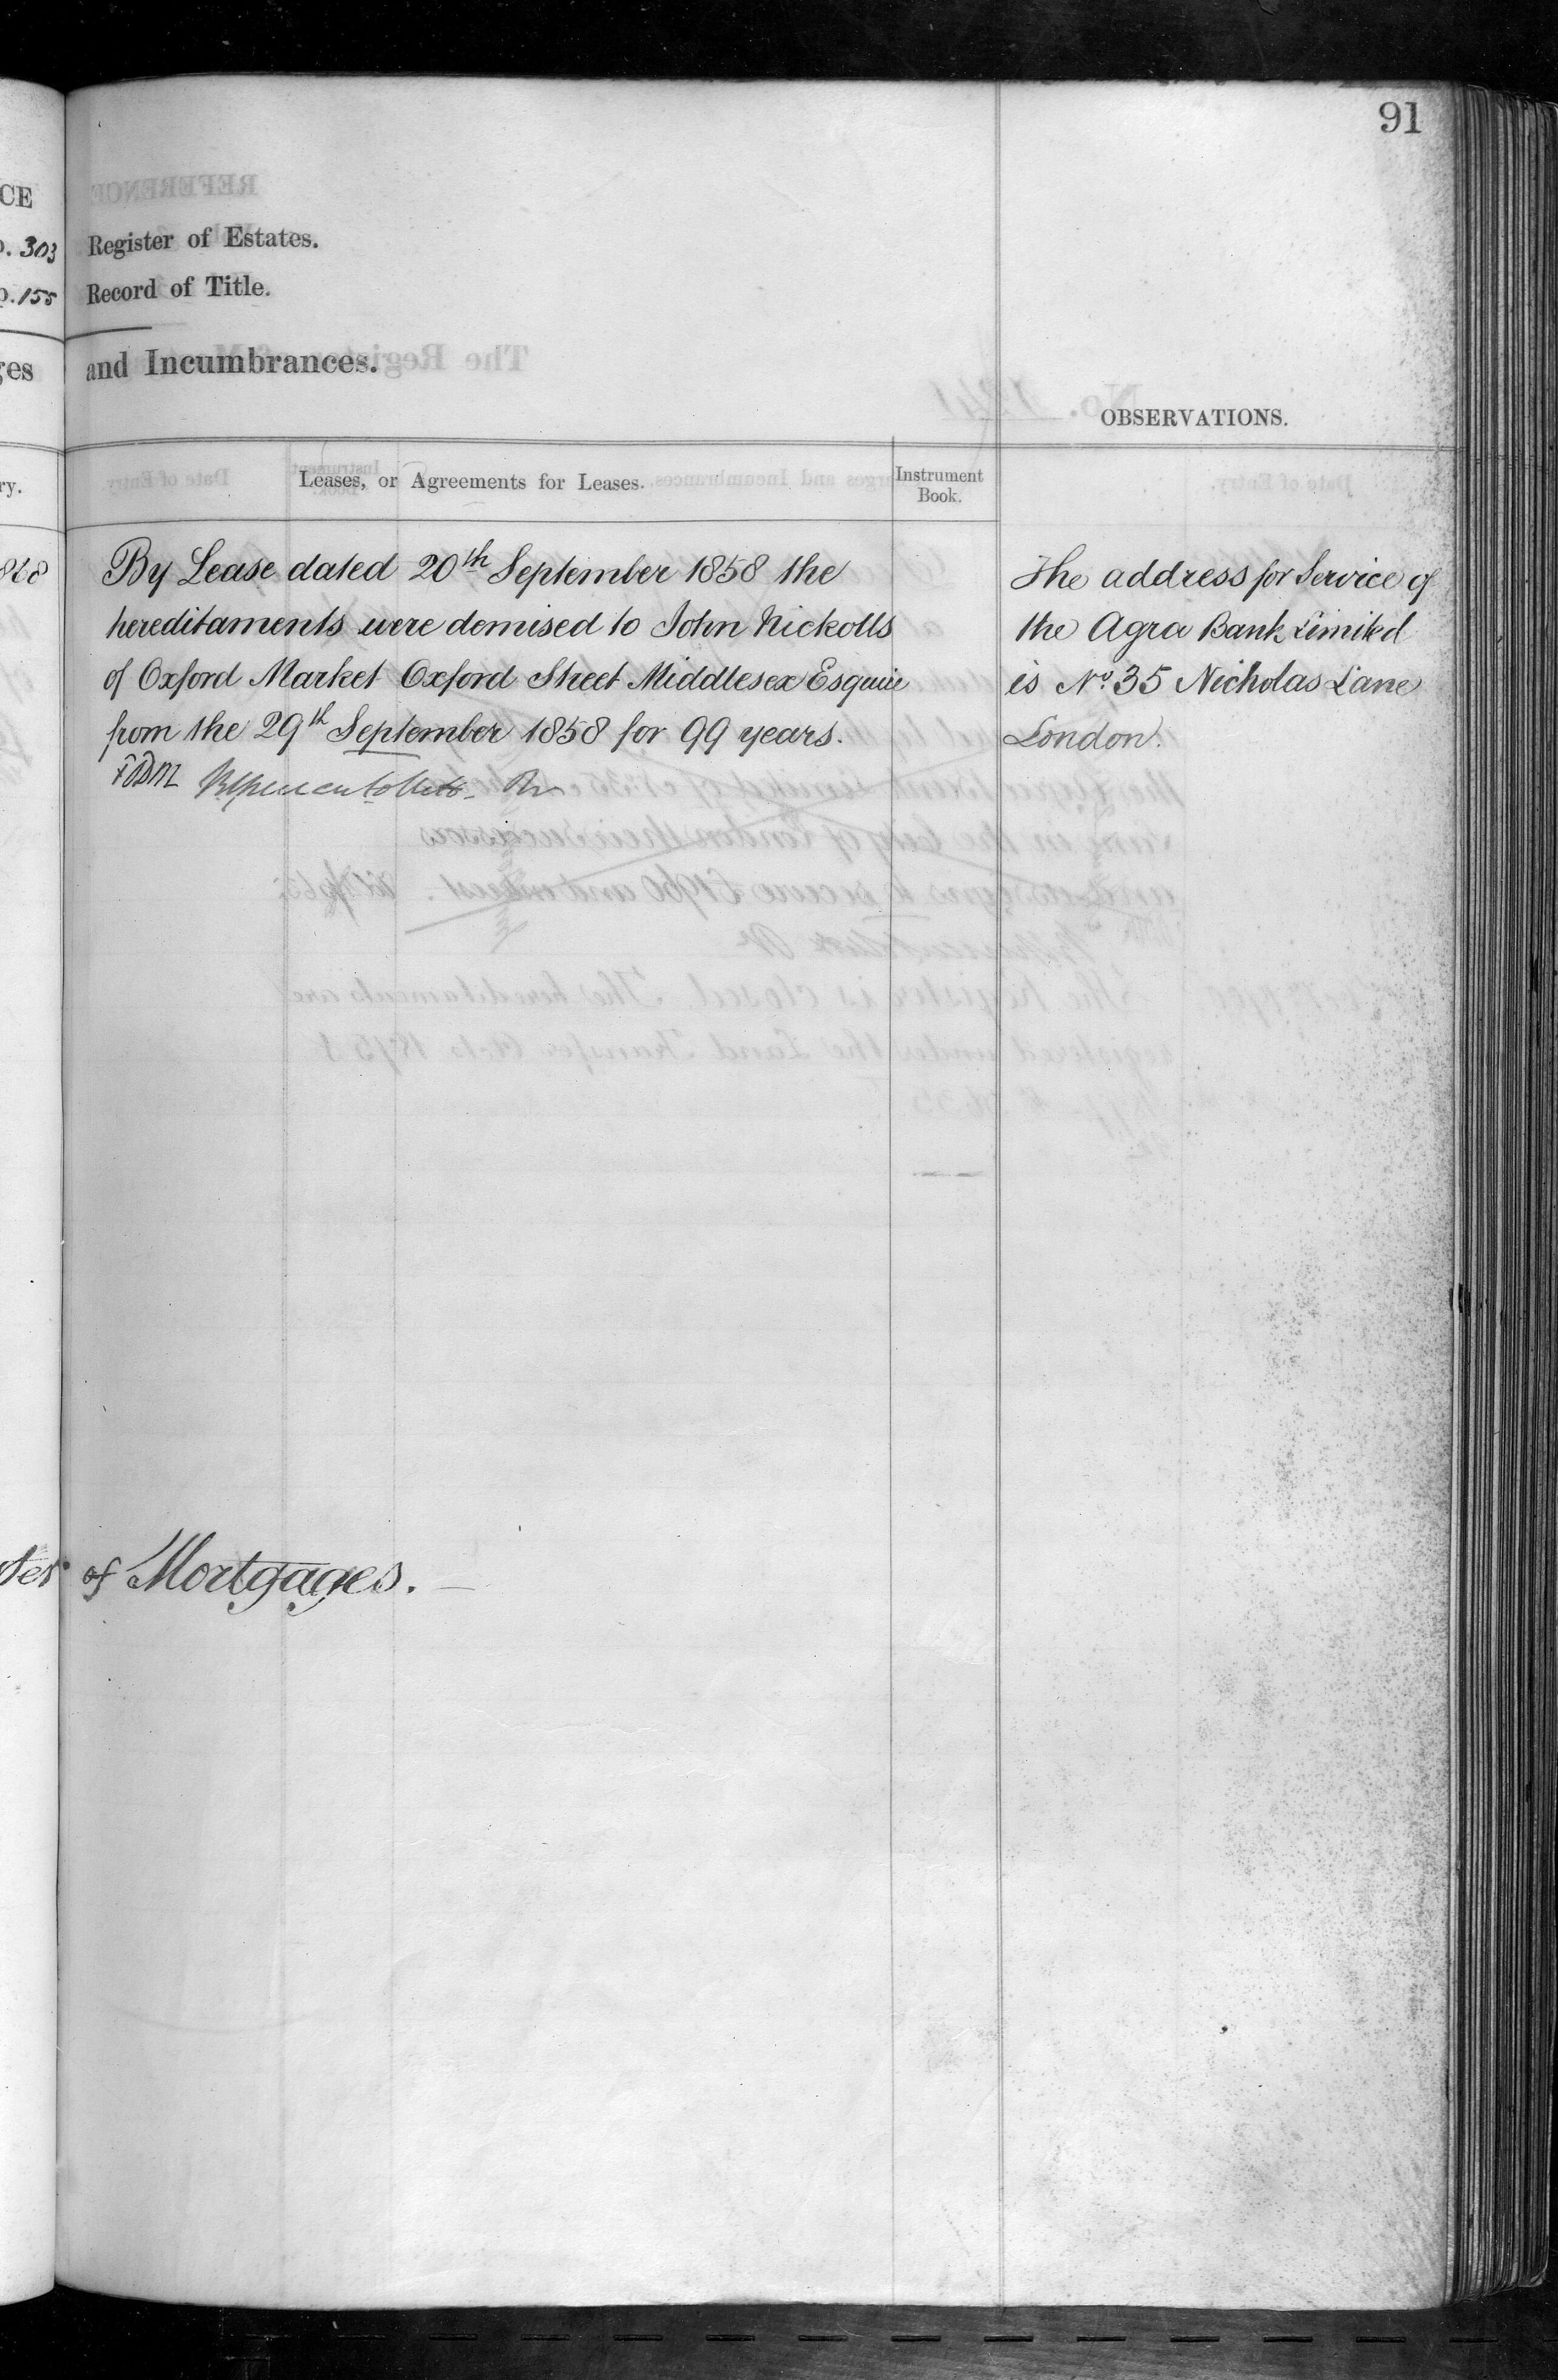 91
CE
303
155
Register of Estates.
Record of Title.
ges
and Incumbrances.
OBSERVATIONS.
ry.
Leases, or Agreements for Leases.
Instrument
Book.
868
By Lease dated 20th September 1858 the
hereditaments were demised to John Nickolls
of Oxford Market Oxford Street Middlesex Esquire
from the 29th September 1858 for 99 years.
The address for Service of
the Agra Bank Limited
is No. 35 Nicholas Lane
London.
ster of Mortgages.